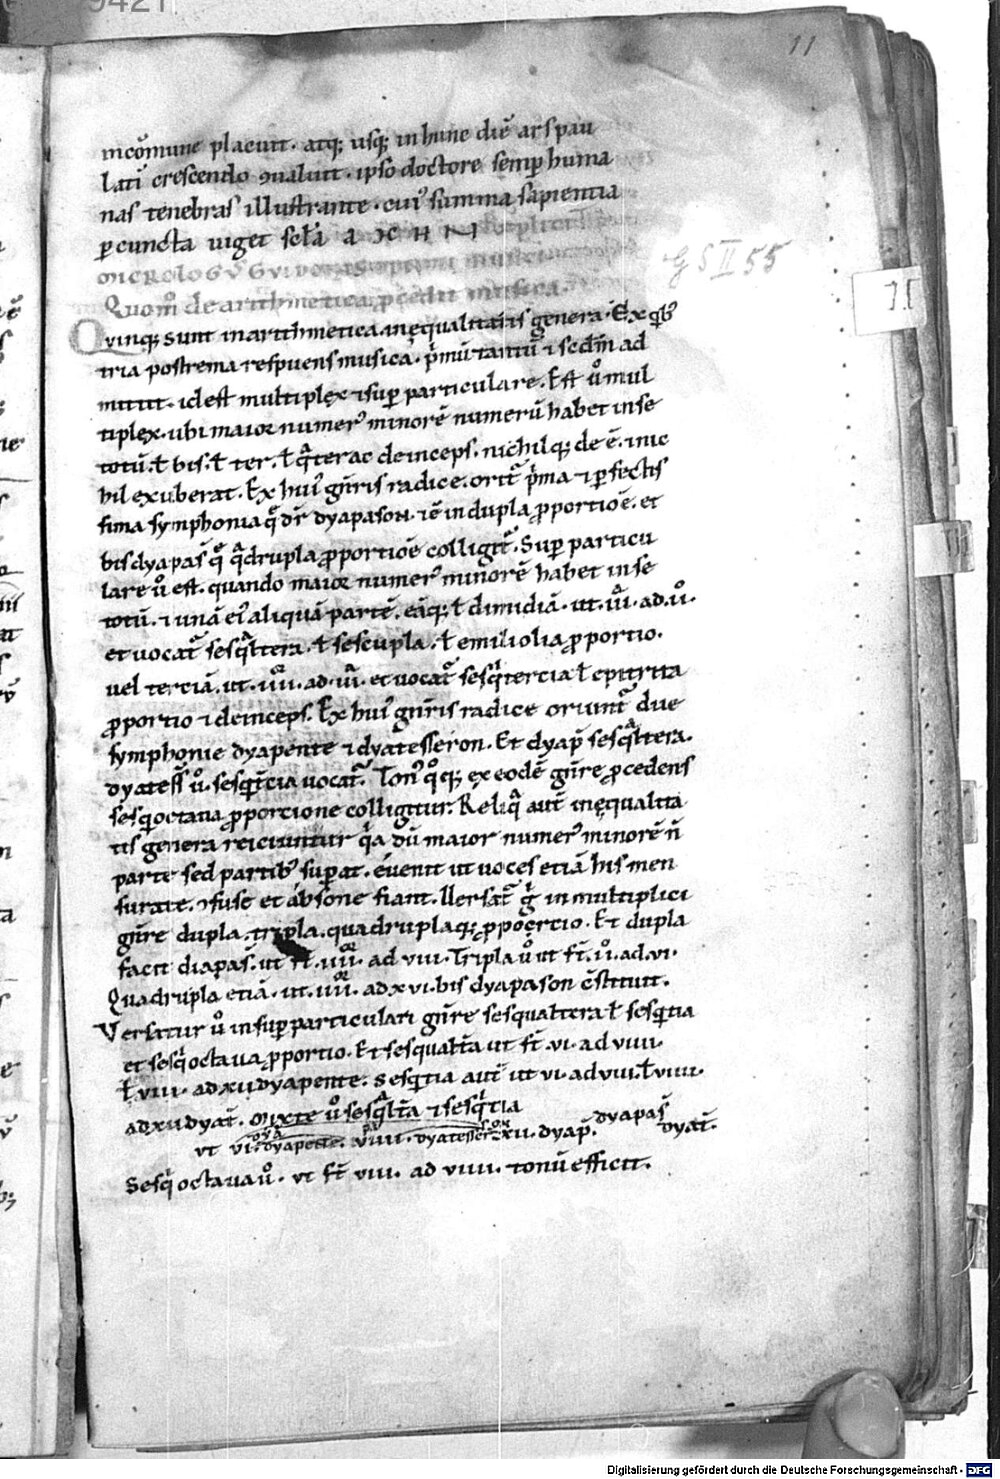 9421
11
incōmune placuit. atq; usq; in hunc diē ars pau
lati crescendo ꝯualuit. ipso doctore semp huma
nas tenebras illustrante. cui᷒ summa sapientia
ꝑ cuncta uiget sc̄la a
GS II 55
Quom̊ de arithmetica ꝓcedit musica.
11
Quinq; sunt in arithmetica inęqualitatis genera. Ex qͥb᷒
tria postrema respuens musica. pͥmū tantū ⁊ secd̄m ad
mittit. id est multiplex ⁊ suꝑ particulare. Est u̇̊ mul
tiplex. ubi maior numer᷒ minorē numerū habet in se
totū. ł bis. ł ter. ł qͣter ac deinceps. nichilq; deē. ⁊ nic
hil exuberat. Ex hui᷒ gn̄ris radice. orit᷑ pͥma ⁊ ꝑfectis
sima symphonia q̄ dr̄ dyapason. ⁊ ē in dupla ꝓportiōe. et
bisdyapas̄ q̊ qͣdrupla ꝓportiōe colligit᷑. Suꝑ particu
lare u̇̊ est. quando maior numer᷒ minorē habet in se
totū. ⁊ unā ei᷒ aliquā partē. eāq; ł dimidiā. ut. iii. ad. ii.
et uocat᷑ sesqͣltera. ł sescupla. ł emiliolia ꝓportio.
uel terciā. ut. iiii. ad. iii. et uocat᷑ sesqͥtercia ł epitrita
ꝓportio ⁊ deinceps. Ex hui᷒ gn̄ris radice oriunt᷑ due
symphonie dyapente ⁊ dyatesseron. Et dyap̄ sesqͣltera.
dyatess̄ u̇̊. sesqͥtcia uocat᷑. Ton᷒ qͦq; ex eodē gn̄re ꝓcedens
sesqͥoctaua ꝓportione colligitur. Reliqͣ aut̄ inęqualita
tis genera reiciuntur qͥa dū maior numer᷒ minorē n̄
parte sed partib᷒ suꝑat. euenit ut uoces etiā his men
surate. ꝯfuse et absone fiant. Uersat᷑ gͥ in multiplici
gn̄re dupla. tripla. quadruplaq; ꝓporcio. Et dupla
facit diapas̄. ut st̄. iiii. ad viii. Tripla u̇̊ ut st̄. ii. ad. vi.
Quadrupla etiā. ut. iiii. ad xvi. bis dyapason c̄stituit.
Versatur u̇̊ in suꝑparticulari gn̄re sesqualtera ł sesqͥtia
et sesqͥ octaua ꝓportio. Et sesqualt̄a ut st̄. vi. ad viiii.
ł. viii. ad xii dyapente. Sesqͥtia aut̄ ut vi. ad viii. ł viiii.
ad xii dyat̄. Mixte u̇̊ sesqͣlt̄a ⁊ sesqͥtia
dyapas̄
ut vi. dyapente. viiii. dyatesseron xii. dyap̄. dyat̄.
Sesqͥ octaua u̇̊. ut st̄ viii. ad viiii. tonū efficit.
Digitalisierung gefördert durch die Deutsche Forschungsgemeinschaft - DFG